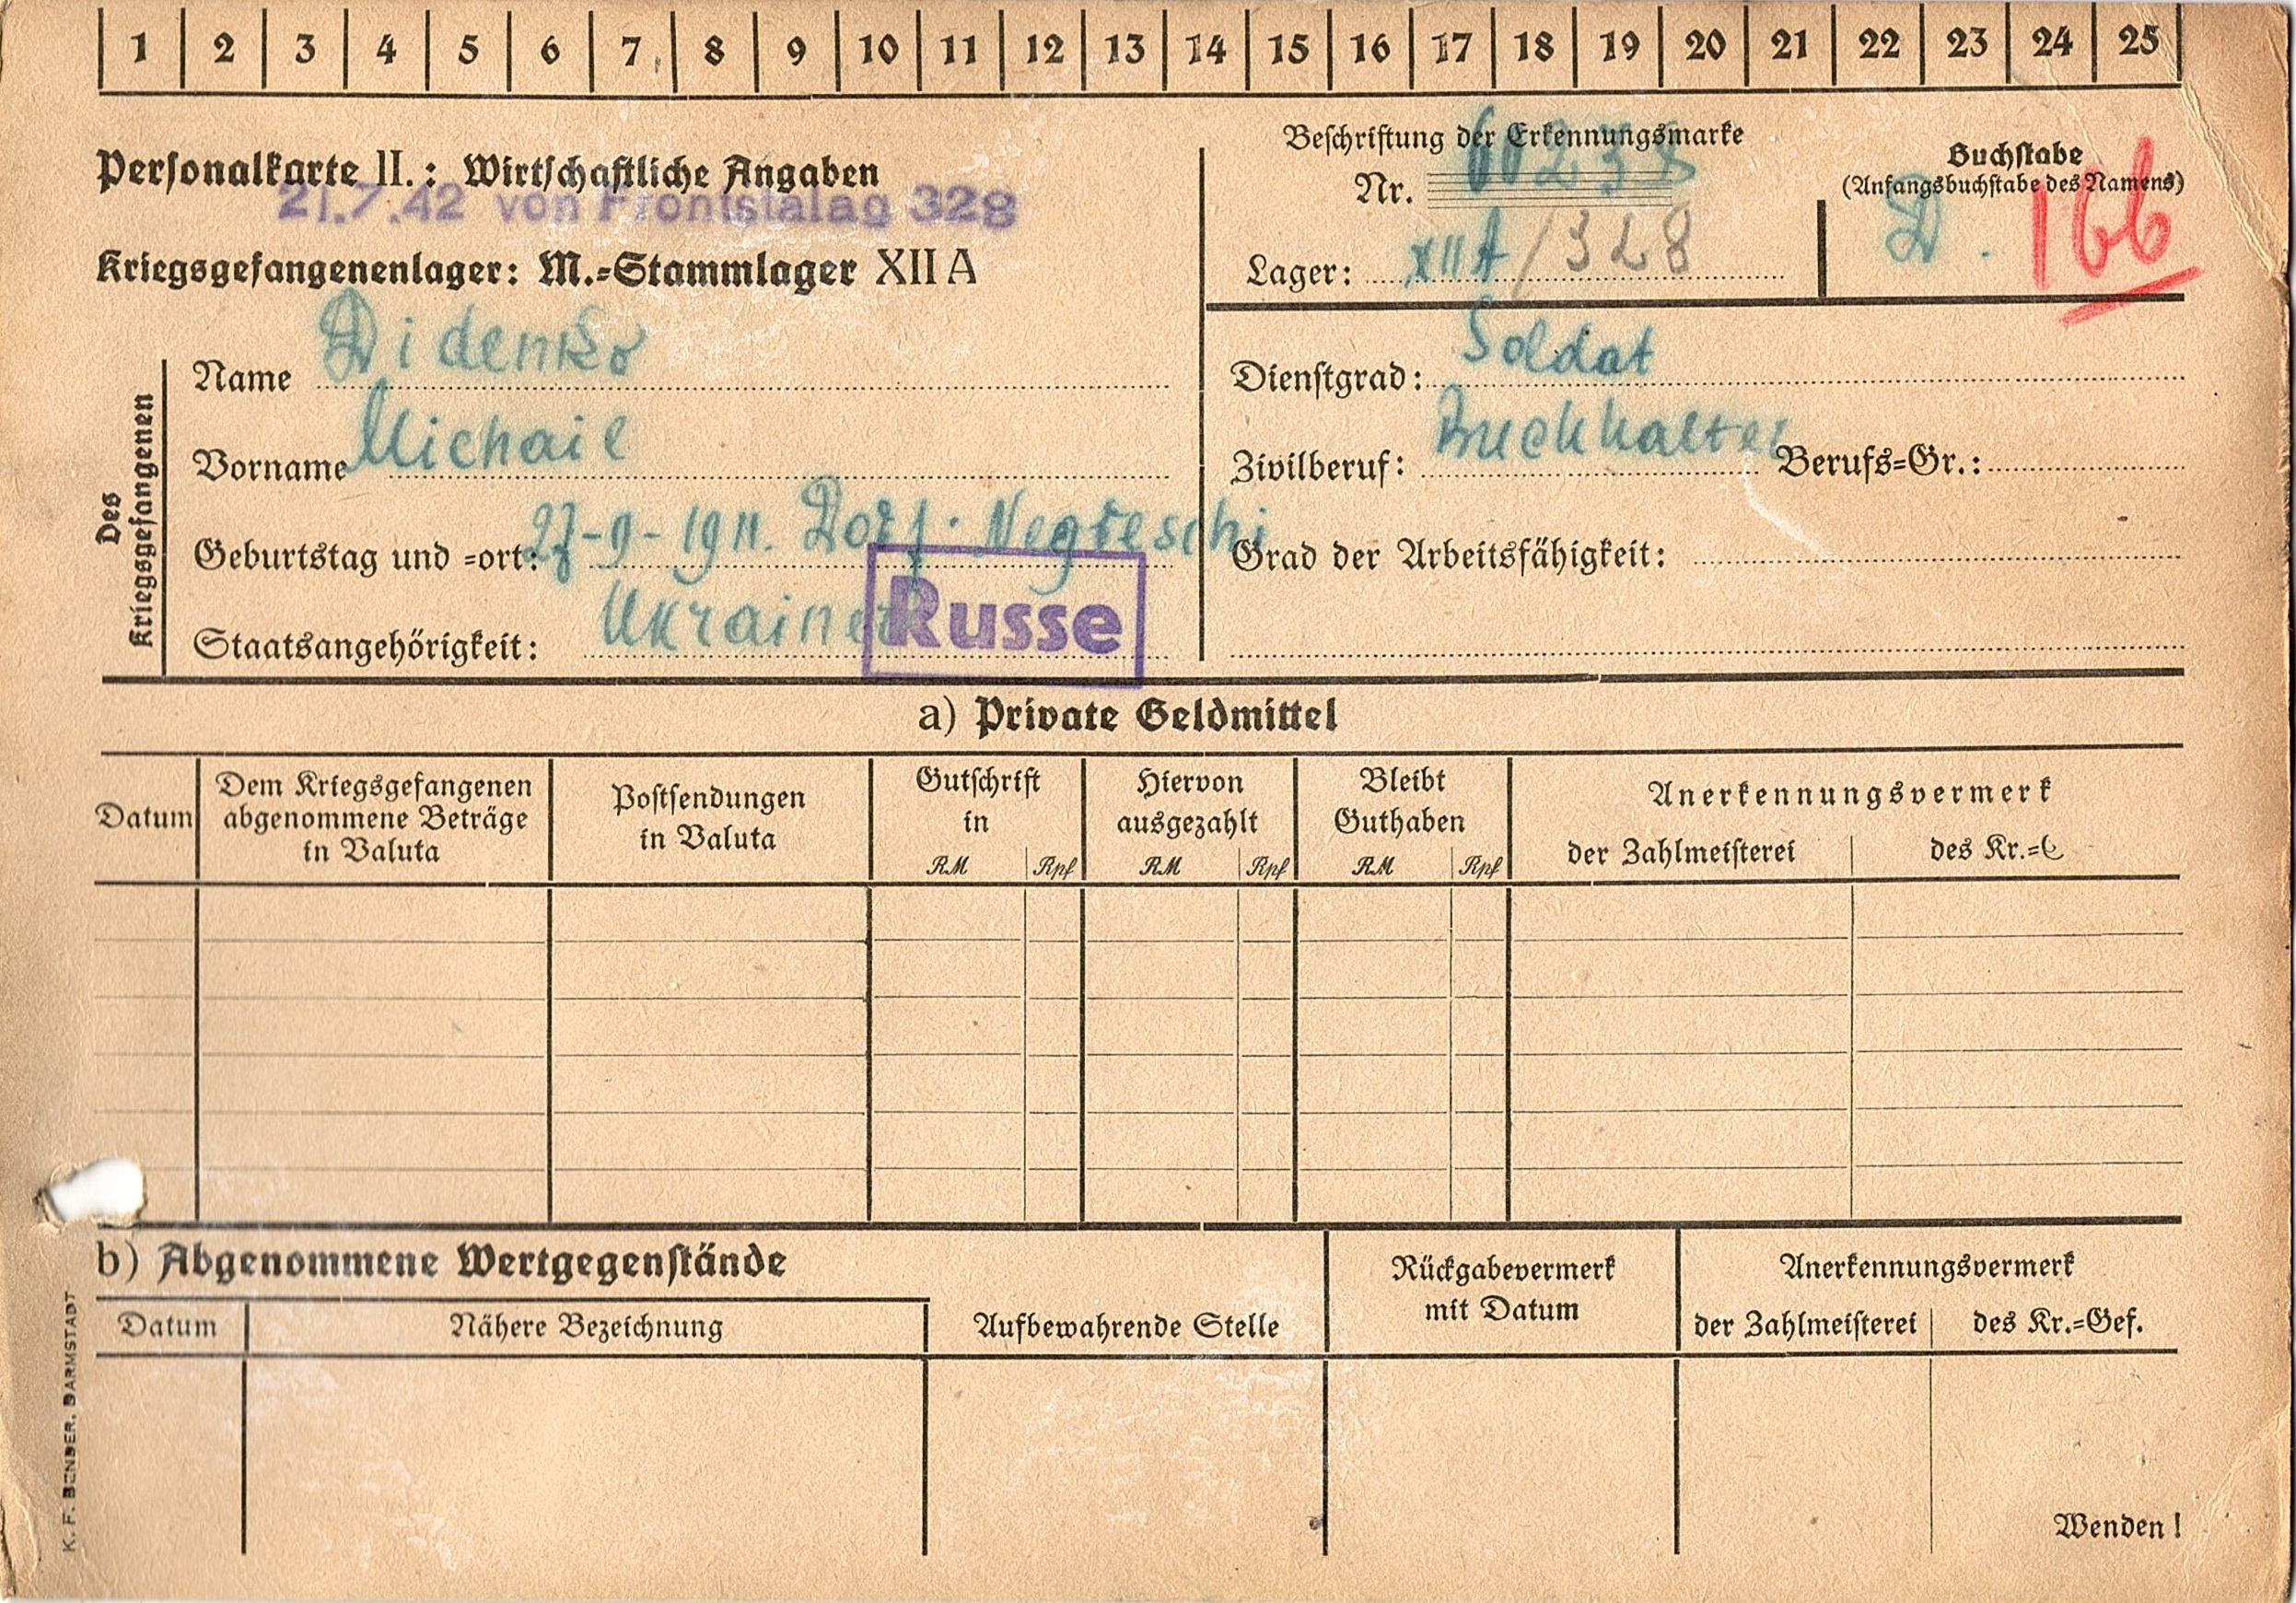 1 2 3 4 5 6 7 8 9 10 11 12 13 14 15 16 17 18 19 20 21 22 23 24 25
Personalkarte II.: Wirtschaftliche Angaben
21.7.42 von Frontstalag 328
Kriegsgefangenenlager: M.=Stammlager XII A
Beschriftung der Erkennungsmarke
Nr.
Lager: XII A / 328
Buchstabe
(Anfangsbuchstabe des Namens)
D. 166
Des Kriegsgefangenen
Name Didenko
Vorname Michail
Geburtstag und =ort: 27-9-1911. Dorf. Negreschi
Staatsangehörigkeit: Ukrainer Russe
Dienstgrad: Soldat
Zivilberuf: Buchhalter Berufs=Gr.:
Grad der Arbeitsfähigkeit:
a) Private Geldmittel
Datum
Dem Kriegsgefangenen
abgenommene Beträge
in Valuta
Postsendungen
in Valuta
Gutschrift
in
RM Rpf
Hiervon
ausgezahlt
RM Rpf
Bleibt
Guthaben
RM Rpf
Anerkennungsvermerk
der Zahlmeisterei des Kr.=
b) Abgenommene Wertgegenstände
Datum Nähere Bezeichnung Aufbewahrende Stelle
Rückgabevermerk
mit Datum
Anerkennungsvermerk
der Zahlmeisterei des Kr.=Gef.
Wenden!
K. F. BENDER, DARMSTADT